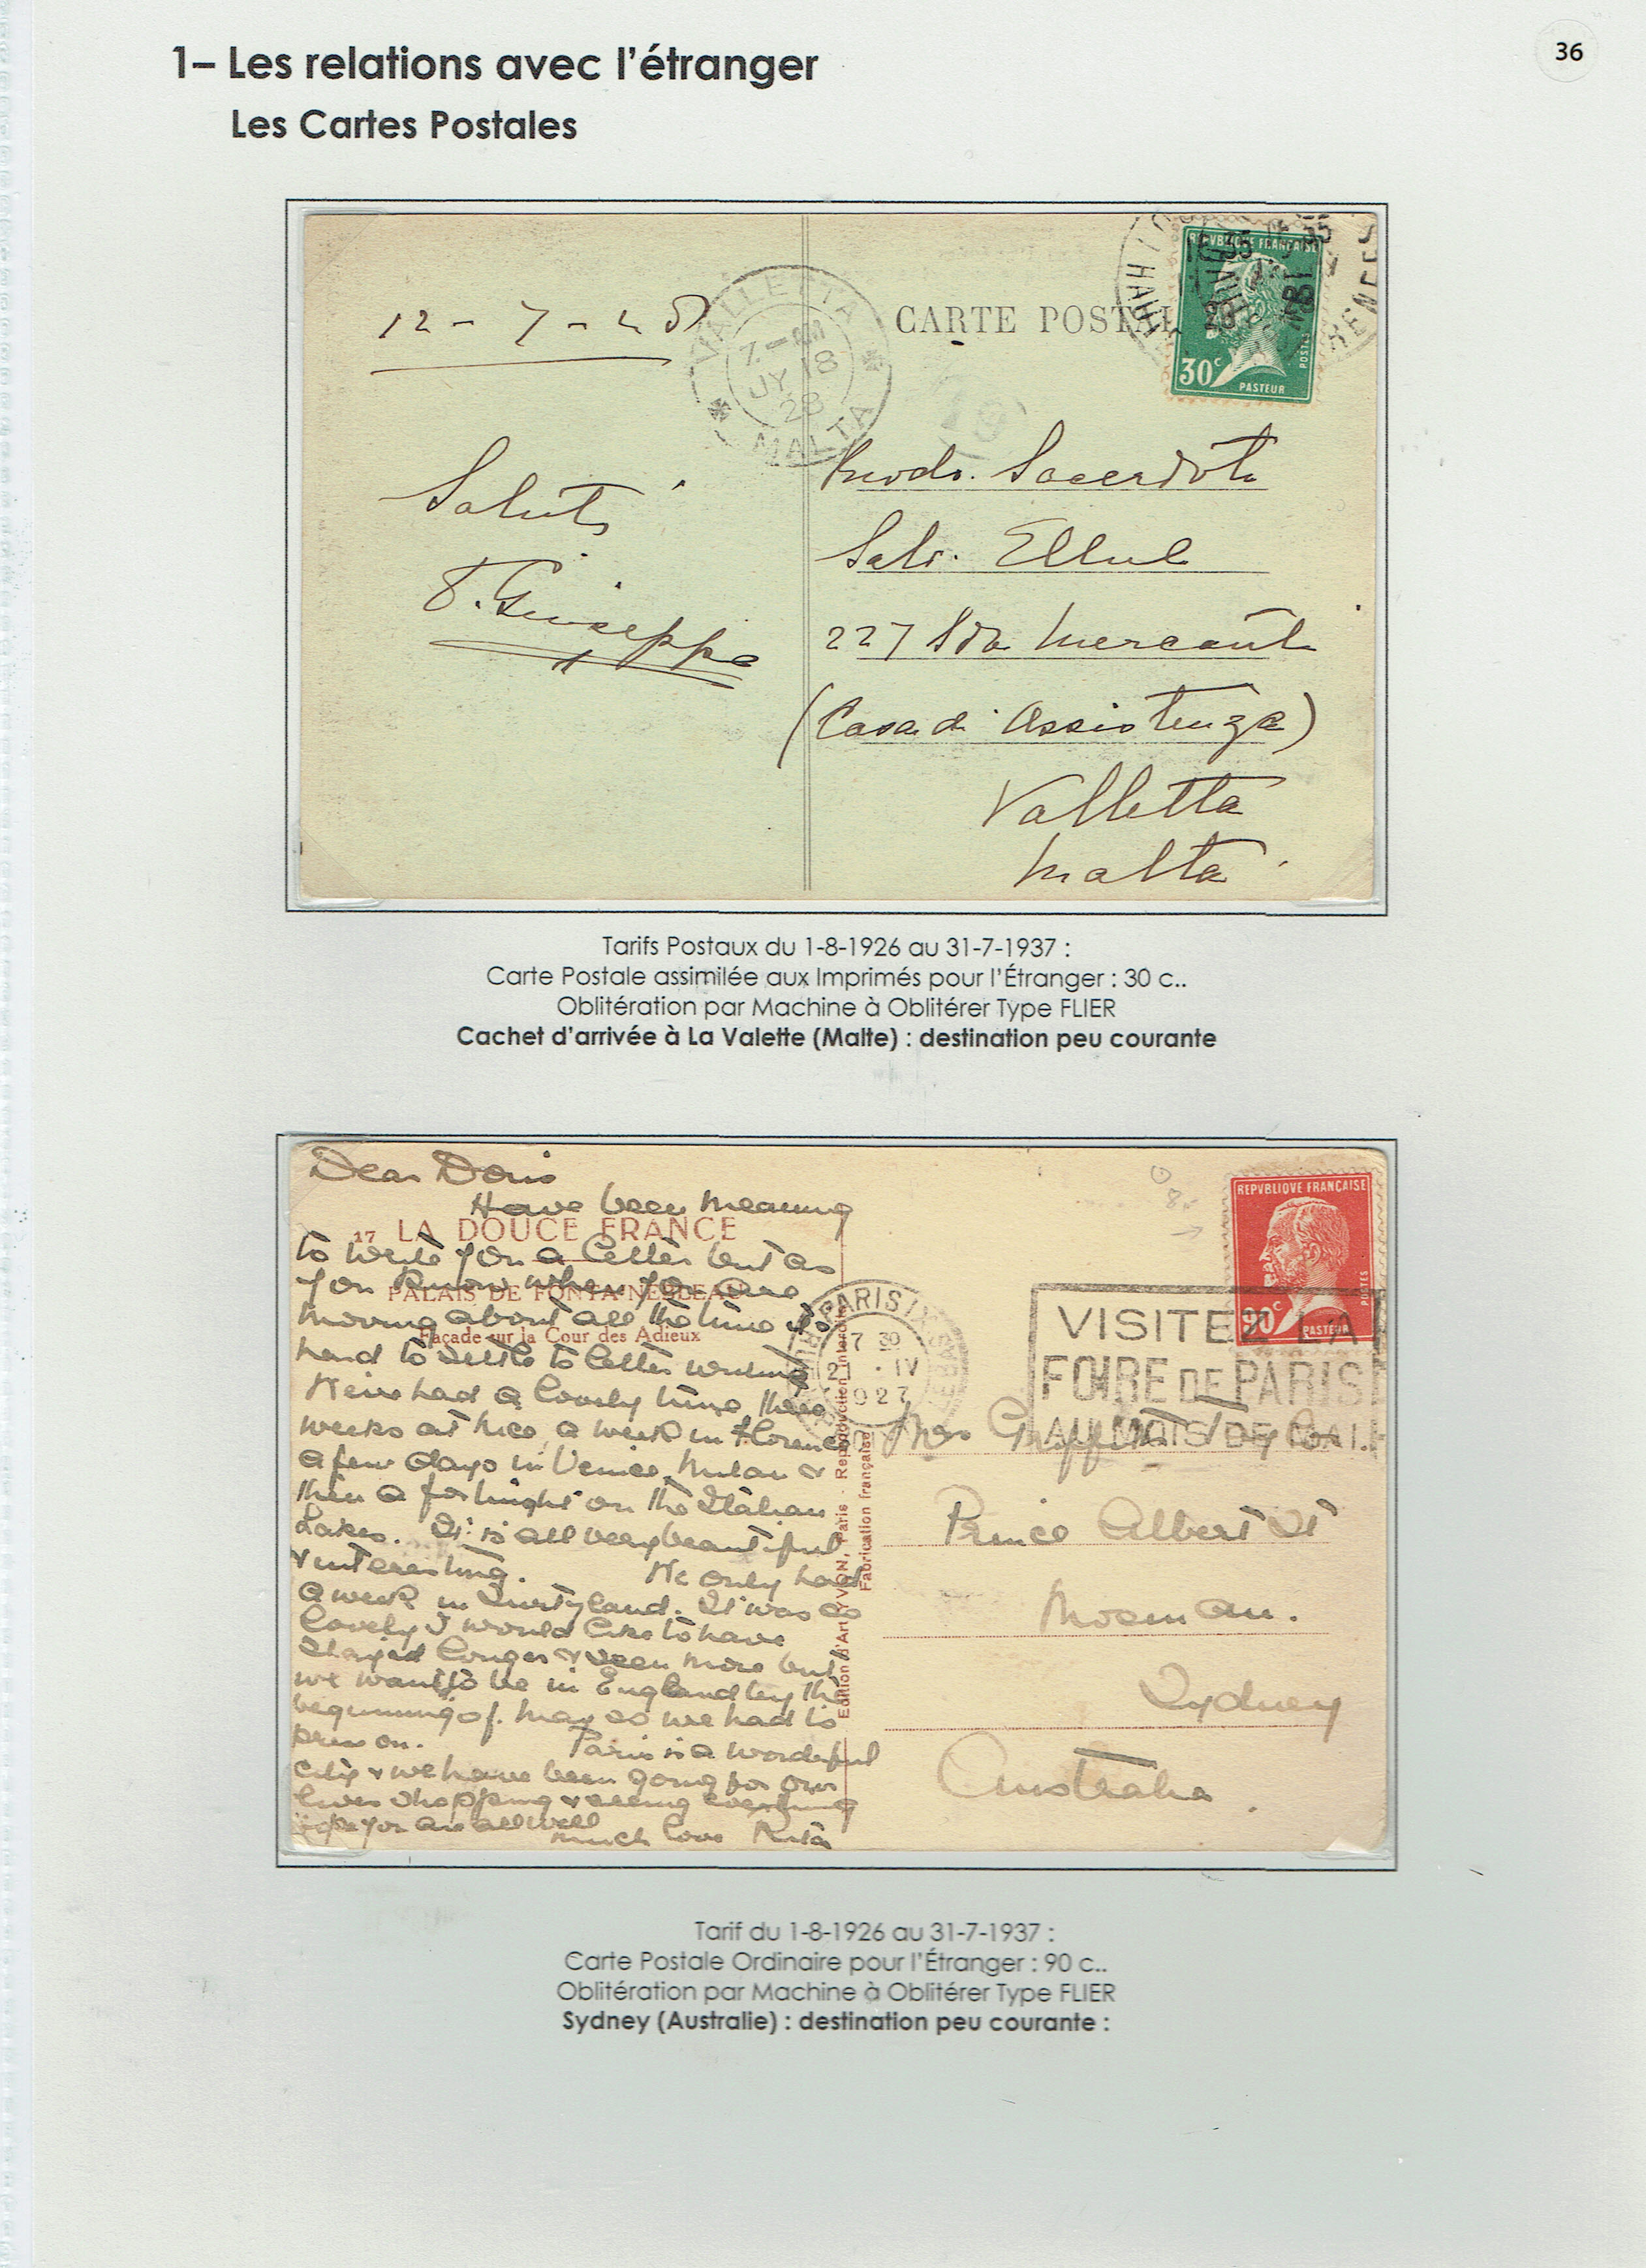 36
1– Les relations avec l'étranger
Les Cartes Postales
12 - 7 - 28
VALLETTA
7 - AM
JY 18
28
MALTA
CARTE POSTAL
REPVBLIQVE FRANÇAISE
30c
POSTES
PASTEUR
Saluti
Giuseppe
Sacerdote
Salv. Ellul
227 Sda Mercanti
(Casa di Assistenza)
Valletta
Malta
Tarifs Postaux du 1-8-1926 au 31-7-1937 :
Carte Postale assimilée aux Imprimés pour l'Étranger : 30 c..
Oblitération par Machine à Oblitérer Type FLIER
Cachet d'arrivée à La Valette (Malte) : destination peu courante
Dear Doris
Have been meaning
17 LA DOUCE FRANCE
to write you a letter but as
you know when you are
PALAIS DE FONTAINEBLEAU
moving about all the time its
Façade sur la Cour des Adieux
hard to settle to letter writing
We've had a lovely time three
weeks at Nice, a week in Florence
a few days in Venice, Milan &
then a fortnight on the Italian
Lakes. It is all very beautiful
& interesting. We only had
a week in Switzyland. It was so
lovely I would like to have
stayed longer & seen more but
we want to be in England by the
beginning of May so we had to
press on. Paris is a wonderful
city & we have been going for our
lives shopping & seeing everything
hope you are all well
much love Rita
Edition d'Art YVON, Paris - Reproduction interdite
Fabrication française
PARIS IX
7 30
2 · IV
1927
REPVBLIQVE FRANÇAISE
90c
POSTES
PASTEUR
VISITEZ LA
FOIRE DE PARIS
AU MOIS DE MAI
Mrs Griffith Taylor
Prince Albert St
Mosman.
Sydney
Australia.
Tarif du 1-8-1926 au 31-7-1937 :
Carte Postale Ordinaire pour l'Étranger : 90 c..
Oblitération par Machine à Oblitérer Type FLIER
Sydney (Australie) : destination peu courante :